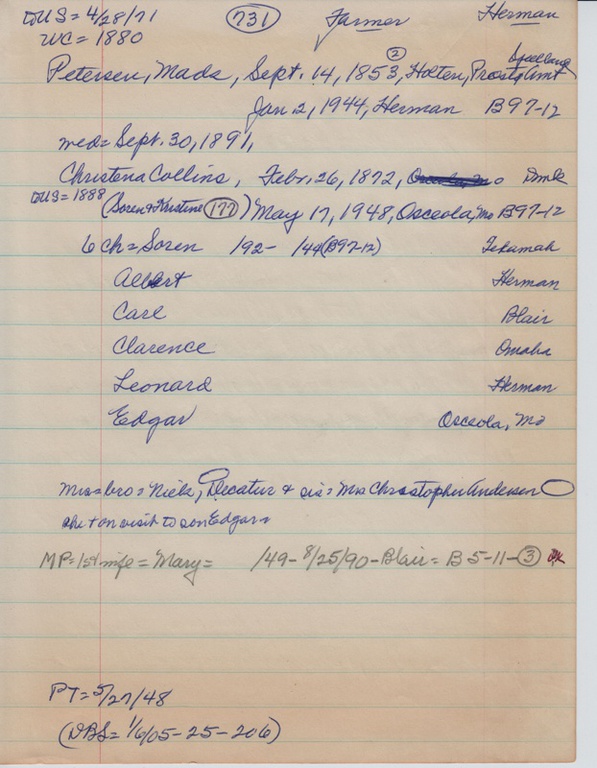 DUS = 4/28/71 731 Farmer Herman
WC = 1880
Petersen, Mads, Sept. 14, 1853, ② Holten, Præstø Amt
Jan. 2, 1944, Herman B97-12
med = Sept. 30, 1891,
Christena Collins, Febr. 26, 1872, Dmk
DUS = 1888 (Soren & Kirstine 177) May 17, 1948, Osceola, Mo B97-12
6 ch = Soren 192- 144 (B97-12) Tekamah
Albert Herman
Carl Blair
Clarence Omaha
Leonard Herman
Edgar Osceola, Mo
Mrs = bro = Niels, Decatur & sis = Mrs Christopher Andersen
she † on visit to son Edgar =
MP = 1st wife = Mary = /49 - 8/25/90 - Blair = B 5-11-③ OK
PT = 5/27/48
(DBS = 1/6/05 - 25 - 206)